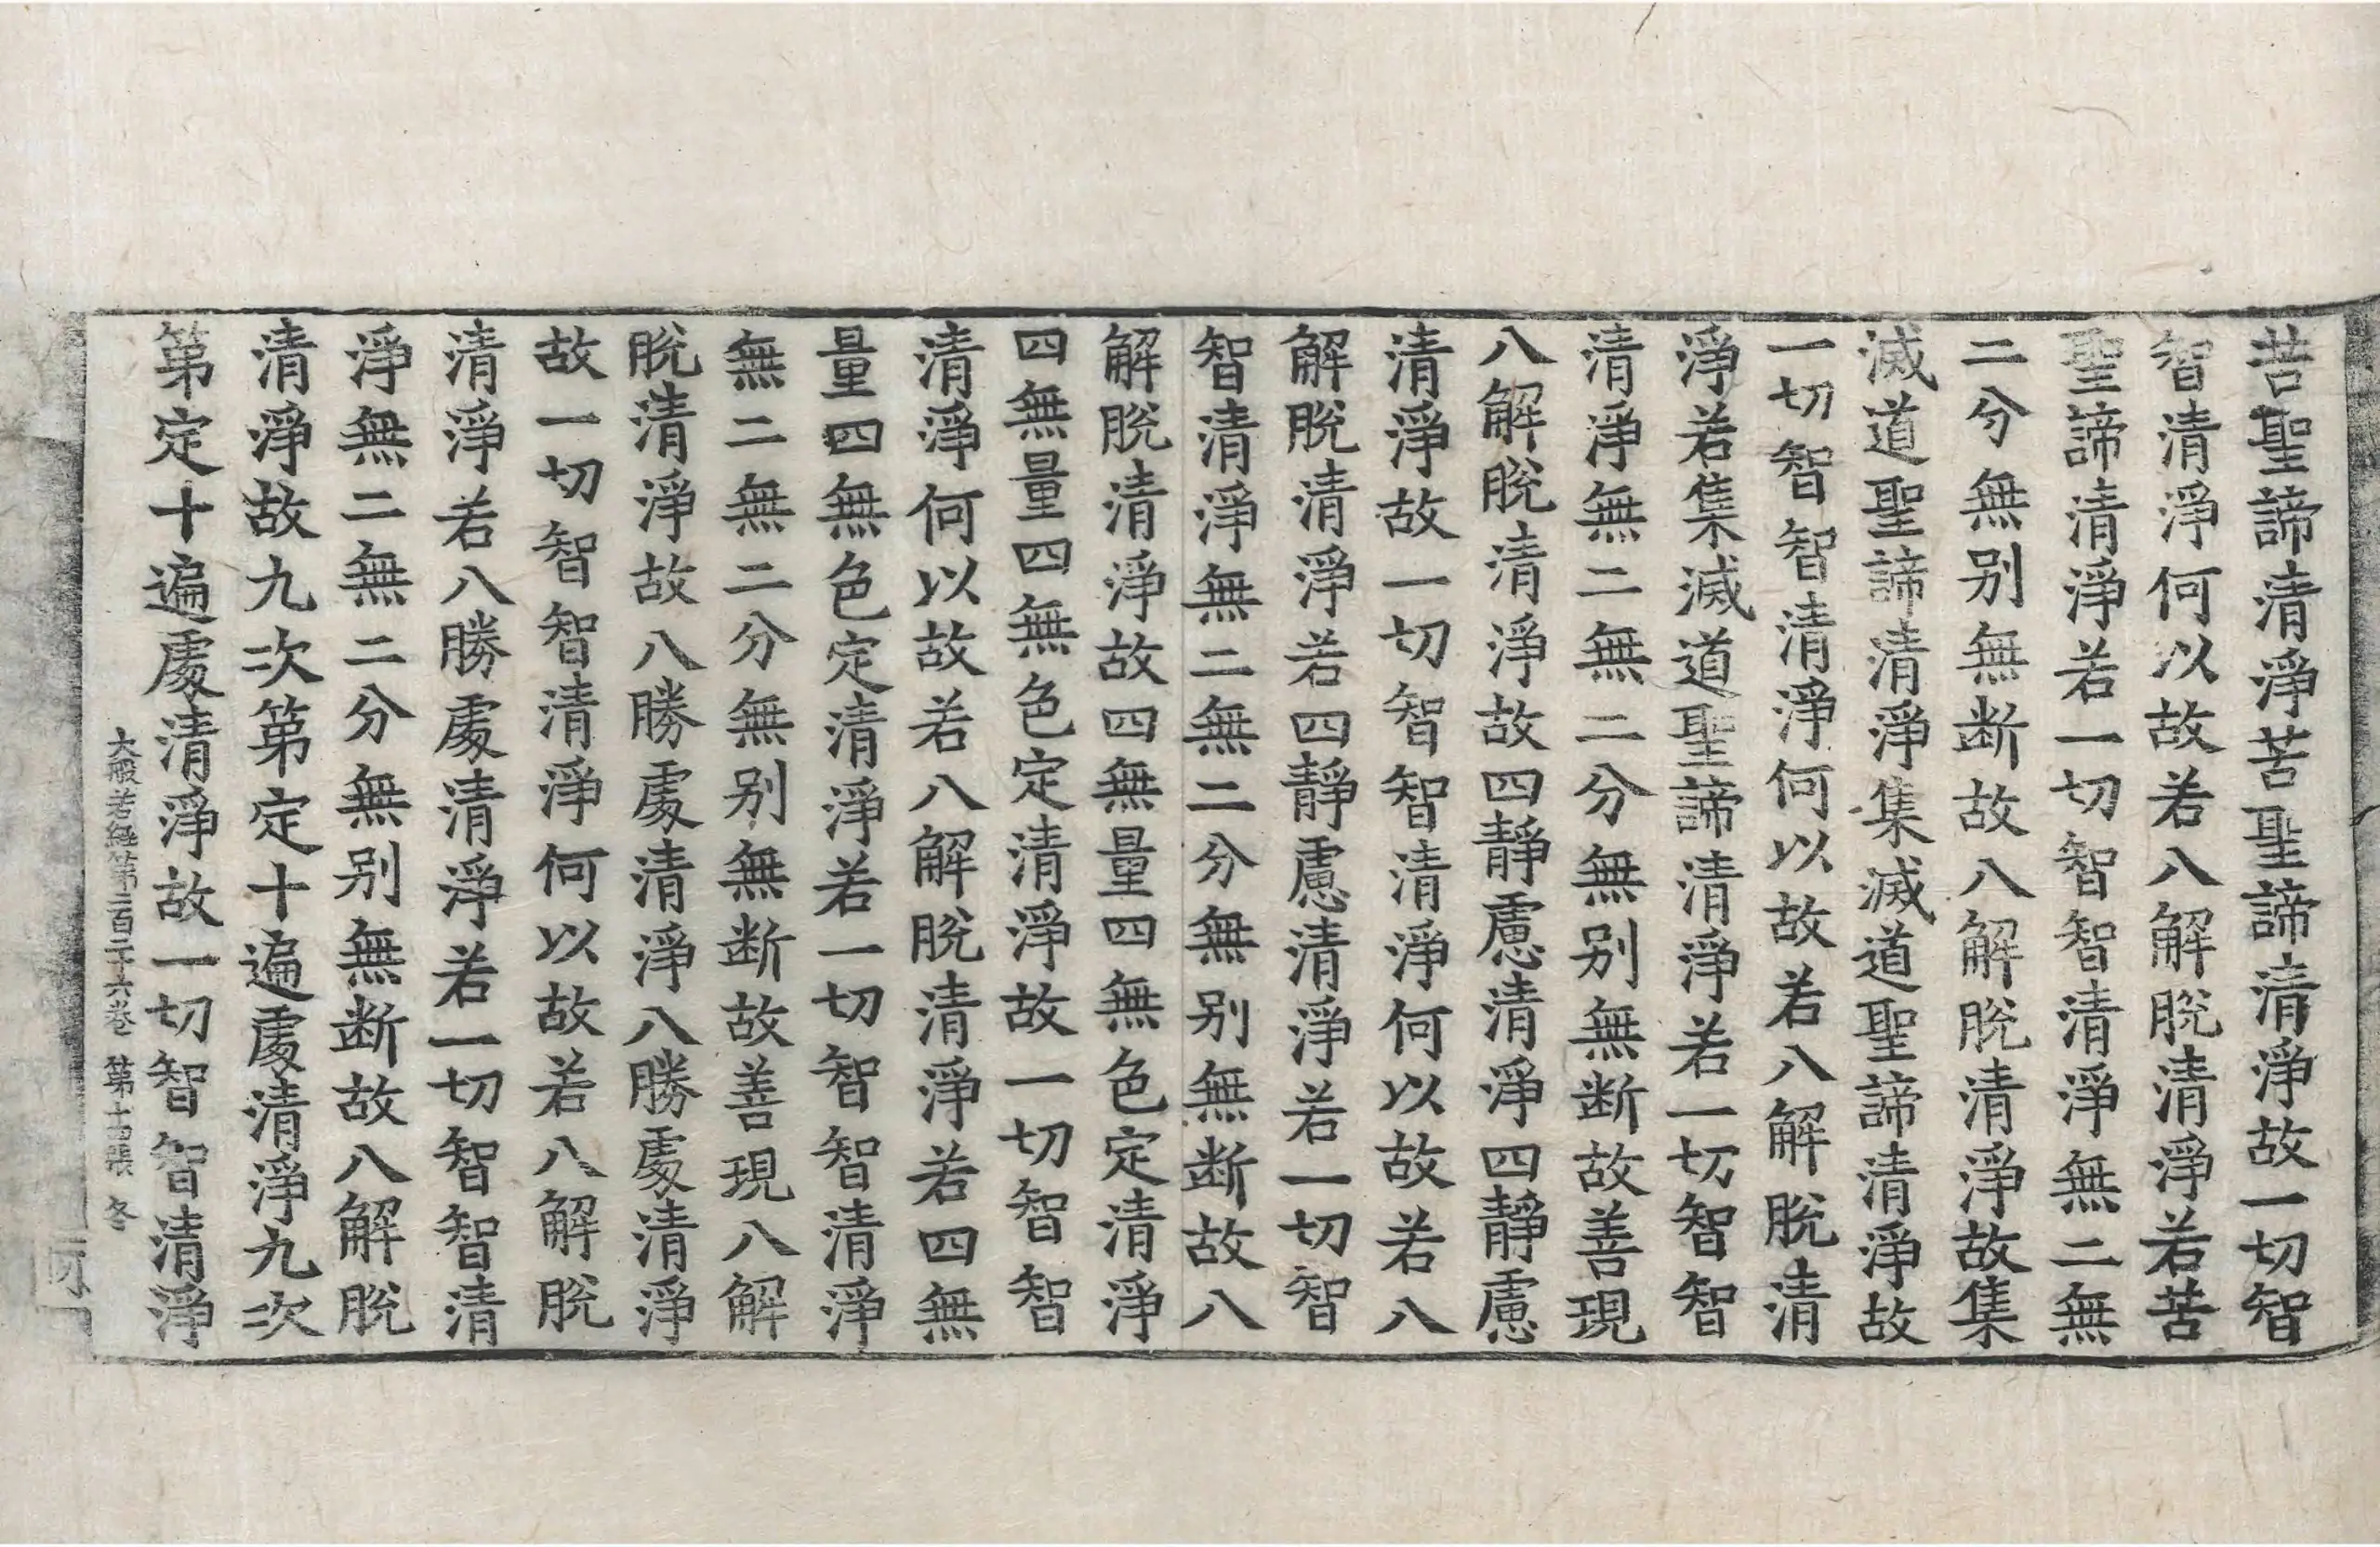 苦聖諦清淨苦聖諦清淨故一切智
智清淨何以故若八解脫清淨若苦
聖諦清淨若一切智智清淨無二無
二分無别無断故八解脫清淨故集
滅道聖諦清淨集滅道聖諦清淨故
一切智智清淨何以故若八解脫清
淨若集滅道聖諦清淨若一切智智
清淨無二無二分無别無断故善現
八解脫清淨故四靜慮清淨四靜慮
清淨故一切智智清淨何以故若八
解脫清淨若四靜慮清淨若一切智
智清淨無二無二分無别無断故八
解脫清淨故四無量四無色定清淨
四無量四無色定清淨故一切智智
清淨何以故若八解脫清淨若四無
量四無色定清淨若一切智智清淨
無二無二分無别無断故善現八解
脫清淨故八勝處清淨八勝處清淨
故一切智智清淨何以故若八解脫
清淨若八勝處清淨若一切智智清
淨無二無二分無别無断故八解脫
清淨故九次第定十遍處清淨九次
第定十遍處清淨故一切智智清淨
大般若經第二百二十六卷 第十張 冬